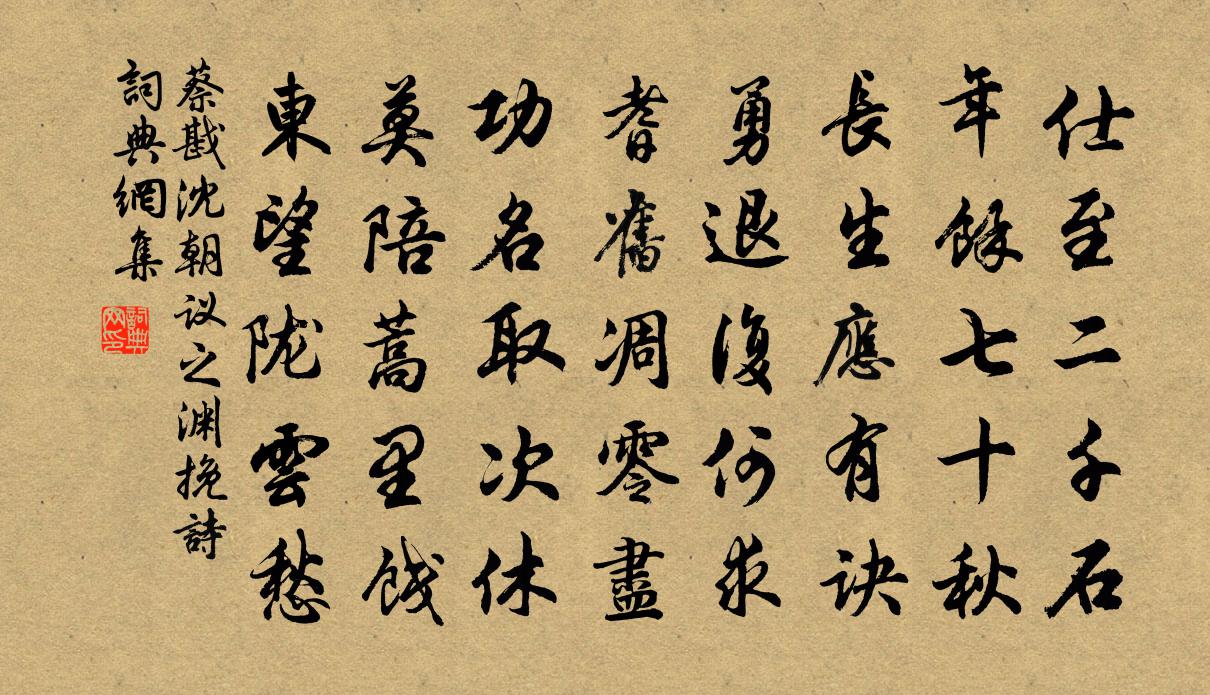 仕至二千石
年餘七十秋
長生應有訣
勇退復何求
耆舊凋零盡
功名取次休
莫陪蒿里餞
東望陇雲愁
蔡戡沈朝议之渊挽詩
詞典網集
詞典网印